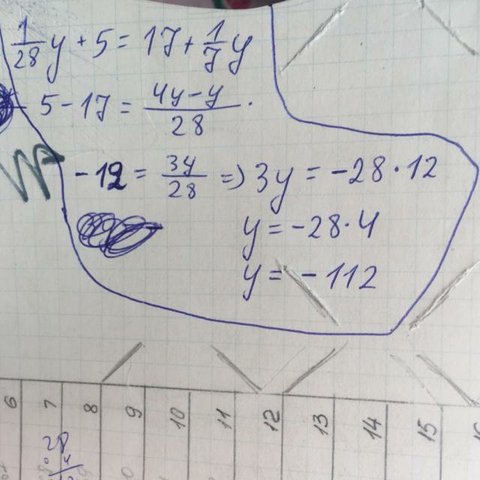 1/28 y + 5 = 17 + 1/7 y
5 - 17 = (4y - y)/28 .
-12 = 3y/28 => 3y = -28·12
y = -28·4
y = -112
6 7 8 9 10 11 12 13 14 15
28